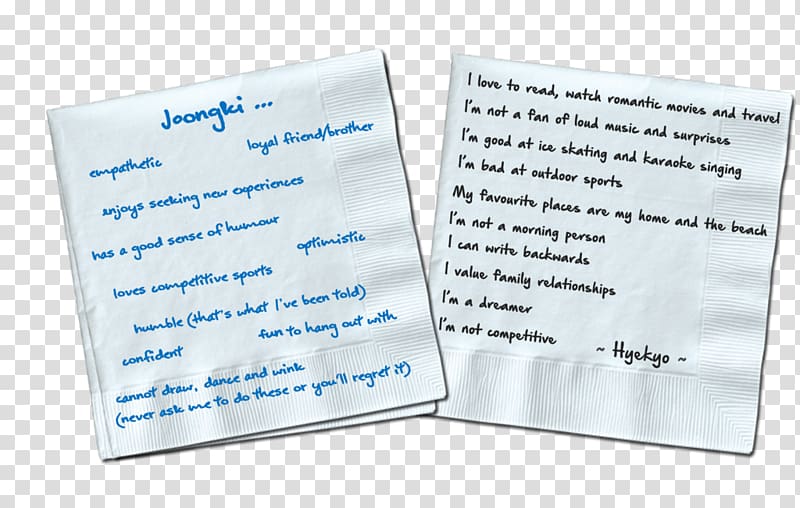 Joongki ...
loyal friend/brother
empathetic
enjoys seeking new experiences
has a good sense of humour
optimistic
loves competitive sports
humble (that's what I've been told)
fun to hang out with
confident
cannot draw, dance and wink
(never ask me to do these or you'll regret it)
I love to read, watch romantic movies and travel
I'm not a fan of loud music and surprises
I'm good at ice skating and karaoke singing
I'm bad at outdoor sports
My favourite places are my home and the beach
I'm not a morning person
I can write backwards
I value family relationships
I'm a dreamer
I'm not competitive
~ Hyekyo ~